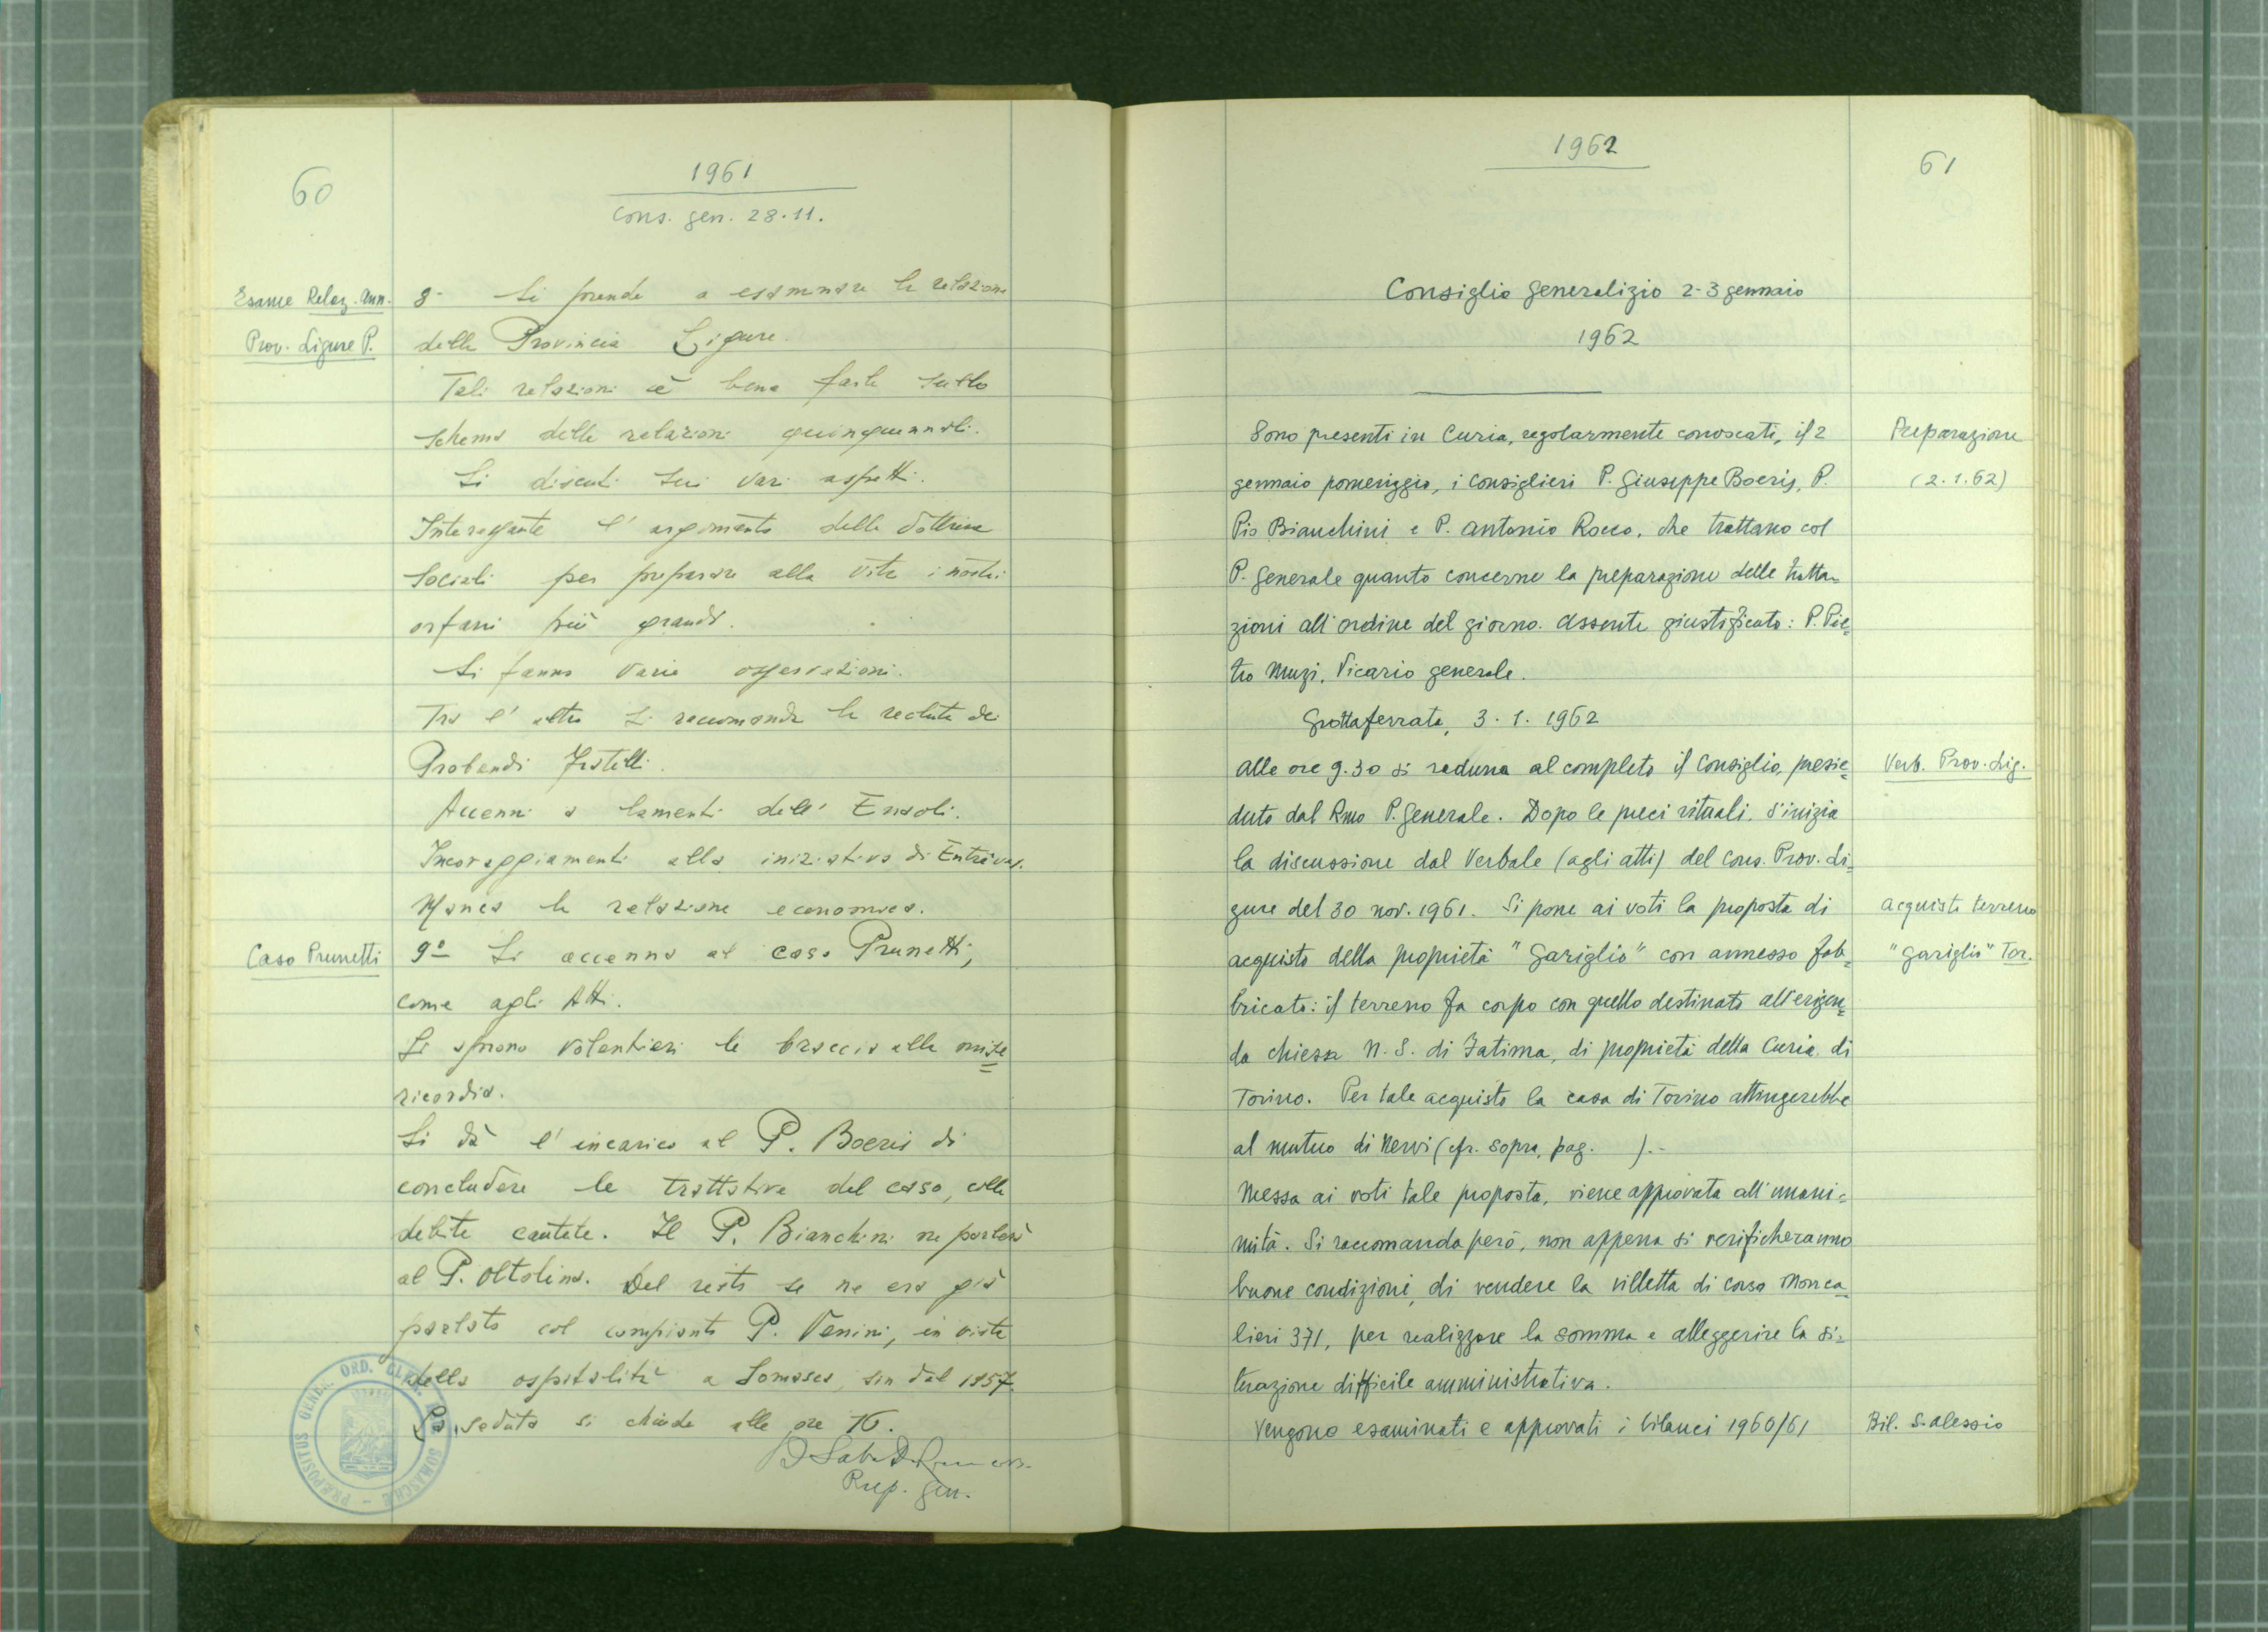 60
1961
Cons. gen. 28.11.
Esame Relaz. Ann.
Prov. Ligure P.
8- Si prende a esaminare la relazione
della Provincia Ligure.
Tali relazioni è bene farle sullo
schema delle relazioni quinquennali.
Si discuti sui vari aspetti.
Interessante l'argomento della dottrina
sociali per preparare alla vita i nostri
orfani più grandi.
Si fanno varie osservazioni.
Tra l'altro si raccomanda la recluta dei
Probandi Fratelli.
Accenni a lamenti dell'Ensoli.
Incoraggiamenti alla iniziativa di Entrèves.
Manca la relazione economica.
Caso Prunetti
9° Si accenna al caso Prunetti,
come agli Atti.
Si aprono volentieri le braccia alla mise=
ricordia.
Si dà l'incarico al P. Boeris di
concludere le trattative del caso, colle
debite cautele. Il P. Bianchini ne parlerà
al P. Oltolina. Del resto se ne era già
parlato col compianto P. Venini, in vista
della ospitalità a Somasca, sin dal 1957.
La seduta si chiude alle ore 16.
Prep. Gen.
PRÆPOSITUS GENER. ORD. CLER. REG. SOMASCHÆ
1962
61
Consiglio generalizio 2-3 gennaio
1962
Sono presenti in Curia, regolarmente convocati, il 2
gennaio pomeriggio, i Consiglieri P. Giuseppe Boeris, P.
Pio Bianchini e P. Antonio Rocco, che trattano col
P. Generale quanto concerne la preparazione delle tratta=
zioni all'ordine del giorno. Assente giustificato: P. Pie=
tro Muzi, Vicario generale.
Preparazione
(2.1.62)
Grottaferrata, 3.1.1962
Alle ore 9.30 si raduna al completo il Consiglio, presie=
duto dal Rmo P. Generale. Dopo le preci rituali, s'inizia
la discussione dal Verbale (agli atti) del Cons. Prov. Li=
gure del 30 nov. 1961. Si pone ai voti la proposta di
acquisto della proprietà "Gariglio" con annesso fab=
bricato: il terreno fa corpo con quello destinato all'erigen=
da chiesa N.S. di Fatima, di proprietà della Curia di
Torino. Per tale acquisto la casa di Torino attingerebbe
al mutuo di Nervi (cfr. sopra, pag. ).-
Messa ai voti tale proposta, viene approvata all'unani=
mità. Si raccomanda però, non appena si verificheranno
buone condizioni, di vendere la villetta di corso Monca=
lieri 371, per realizzare la somma e alleggerire la si=
tuazione difficile amministrativa.
Vengono esaminati e approvati i bilanci 1960/61
Verb. Prov. Lig.
acquisto terreno
"Gariglio" Tor.
Bil. S. Alessio